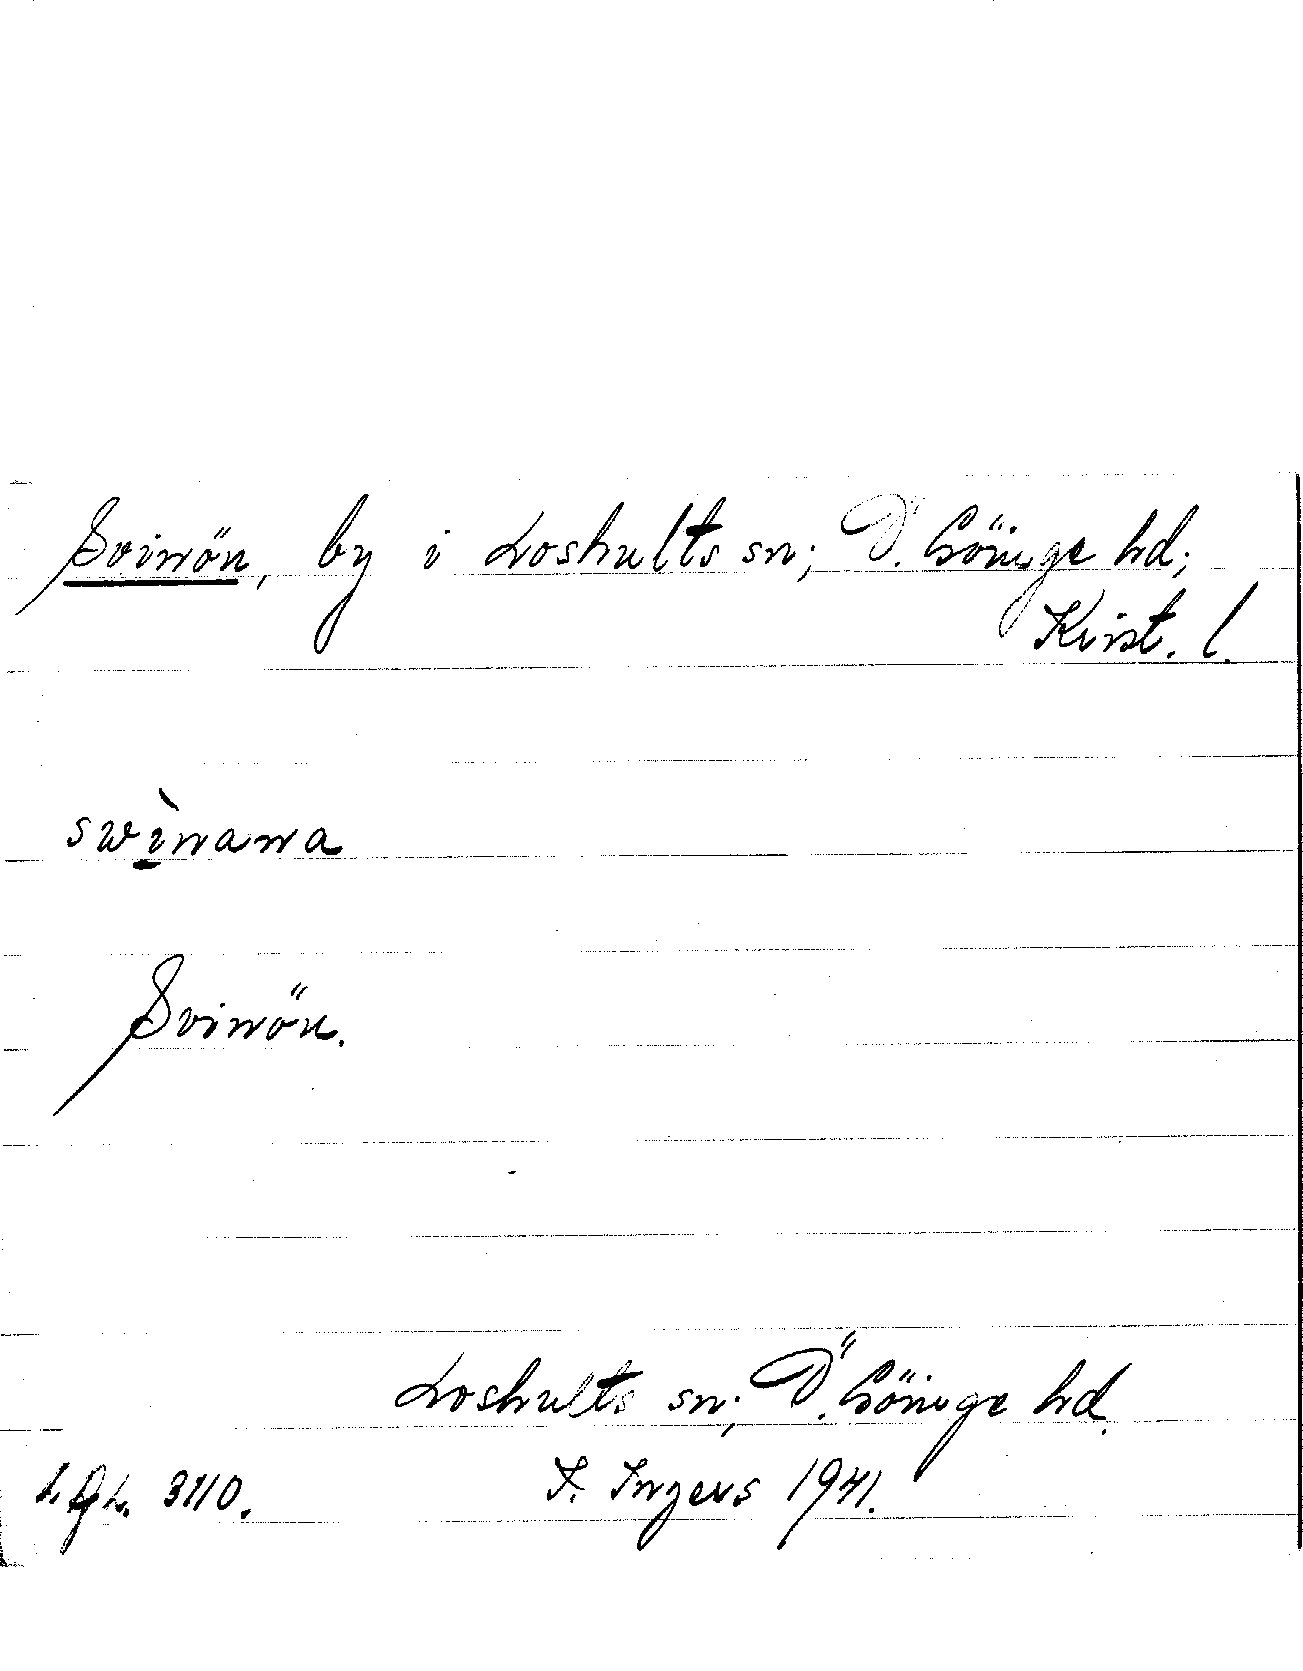 Svinön, by i Loshults sn; Ö. Göinge hd;
Krist. l.
swìnana
Svinön.
Loshults sn; Ö. Göinge hd.
I. Ingers 1941.
3110.